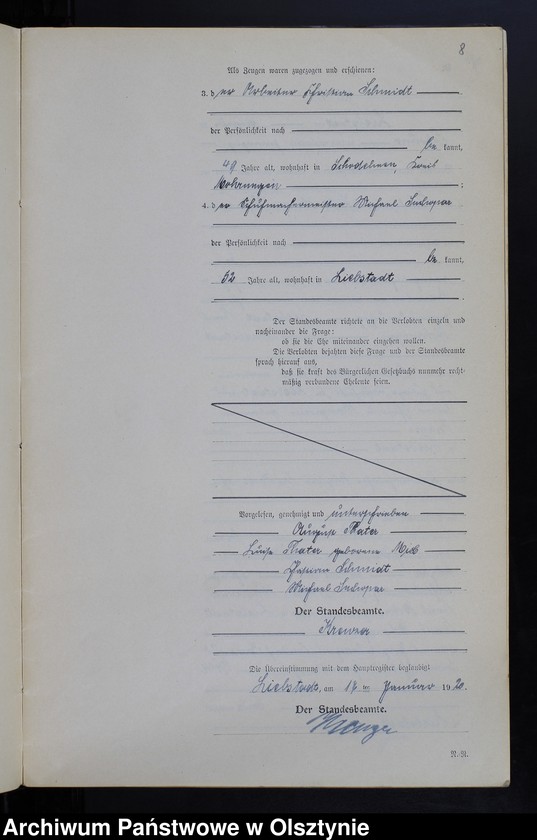 8
Als Zeugen waren zugezogen und erschienen:
3. der Arbeiter Schmidt
der Persönlichkeit nach
be kannt,
49 Jahre alt, wohnhaft in Kreis
Mohrungen ;
4. der Schuhmachermeister Michael
der Persönlichkeit nach
be kannt,
52 Jahre alt, wohnhaft in Liebstadt
.
Der Standesbeamte richtete an die Verlobten einzeln und
nacheinander die Frage:
ob sie die Ehe miteinander eingehen wollen.
Die Verlobten bejahten diese Frage und der Standesbeamte
sprach hierauf aus,
daß sie kraft des Bürgerlichen Gesetzbuchs nunmehr recht-
mäßig verbundene Eheleute seien.
Vorgelesen, genehmigt und unterschrieben
August Thater
Thater geborene
Schmidt
Michael
Der Standesbeamte.
Die Übereinstimmung mit dem Hauptregister beglaubigt
Liebstadt, am 17 ten Januar 1920.
Der Standesbeamte.
N.-N.
Archiwum Państwowe w Olsztynie